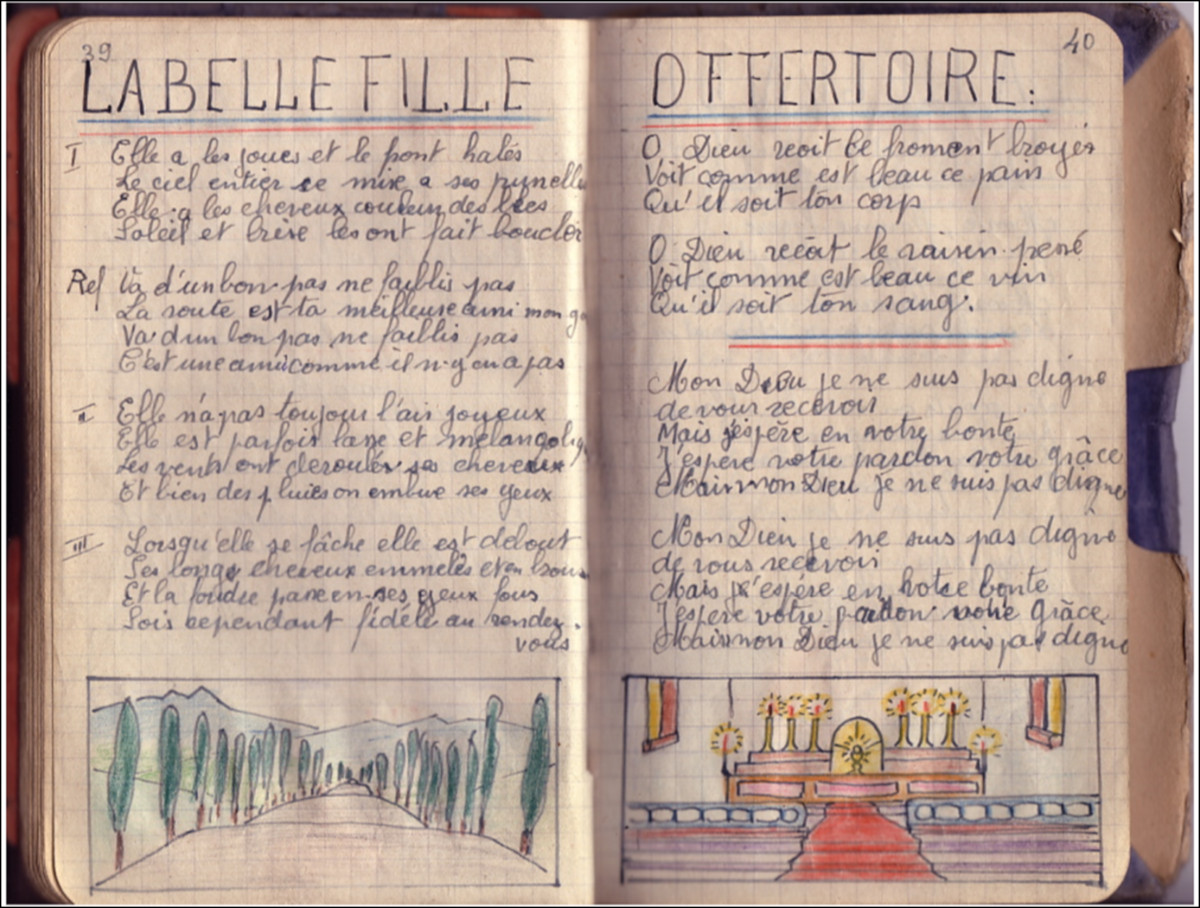 39
LA BELLE FILLE
I Elle a les joues et le front halés
Le ciel entier se mire a ses prunelle
Elle a les cheveux couleur des blés
Soleil et brise les ont fait boucler
Ref Va d'un bon pas ne faiblis pas
La route est ta meilleure ami mon ga
Va d'un bon pas ne faiblis pas
C'est une ami comme il n'y en a pas
II Elle n'a pas toujour l'air joyeux
Elle est parfois lasse et mélancoliq
Les vents ont deroulés ses cheveux
Et bien des pluies on embue ses yeux
III Lorsqu'elle se fâche elle est debout
Ses longs cheveux emmelés et en
Et la foudre passe en ses yeux fous
Sois cependant fidéle au rendez.
vous
40
OFFERTOIRE.
O Dieu recoit le froment broyés
Voit comme est beau ce pain
Qu'il soit ton corp
O Dieu recoit le raisin pressé
Voit comme est beau ce vin
Qu'il soit ton sang.
Mon Dieu je ne suis pas digne
de vous recevoir
Mais j'espère en votre bonté
J'espere votre pardon votre grâce
Mais mon Dieu je ne suis pas digne
Mon Dieu je ne suis pas digne
de vous recevoir
Mais j'espére en votre bonte
J'espere votre pardon votre grâce
Mais mon Dieu je ne suis pas digne